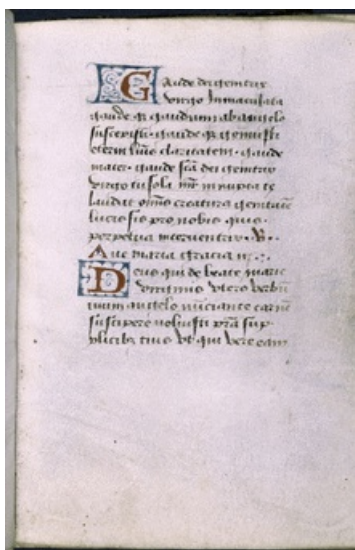 Gaude dei genitrix
virgo Immaculata
gaude q̄ gaudium ab angelo
suscepisti · gaude q̄ genuisti
eterni lūis claritatem · gaude
mater · gaude sc̄a dei genitrix
virgo tu sola mr̄ innupta te
laudat om̄is creatura genitricē
lucis sis pro nobis quis ·
perpetua interventrix · V̄ ·
Aue maria gracia
Deus qui de beate marie
virginis vtero verbū
tuum angelo nūciante carnē
suscipere uoluisti p̄ra sup
plicibs tuis vt qui vere eam